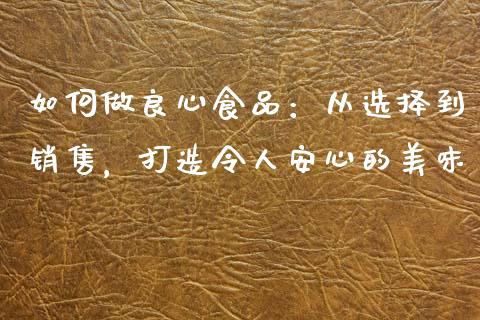 如何做良心食品：从选择到
销售，打造令人安心的美味